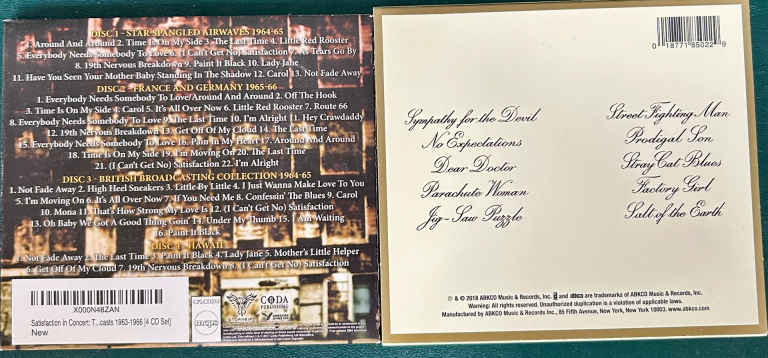 DISC 1 - STAR SPANGLED AIRWAVES 1964-65
1. Around And Around 2. Time Is On My Side 3. The Last Time 4. Little Red Rooster
5. Everybody Needs Somebody To Love 6. (I Can't Get No) Satisfaction 7. As Tears Go By
8. 19th Nervous Breakdown 9. Paint It Black 10. Lady Jane
11. Have You Seen Your Mother Baby Standing In The Shadow 12. Carol 13. Not Fade Away
DISC 2 - FRANCE AND GERMANY 1965-66
1. Everybody Needs Somebody To Love/Around And Around 2. Off The Hook
3. Time Is On My Side 4. Carol 5. It's All Over Now 6. Little Red Rooster 7. Route 66
8. Everybody Needs Somebody To Love 9. The Last Time 10. I'm Alright 11. Hey Crawdaddy
12. 19th Nervous Breakdown 13. Get Off Of My Cloud 14. The Last Time
15. Everybody Needs Somebody To Love 16. Pain In My Heart 17. Around And Around
18. Time Is On My Side 19. I'm Moving On 20. The Last Time
21. (I Can't Get No) Satisfaction 22. I'm Alright
DISC 3 - BRITISH BROADCASTING COLLECTION 1964-65
1. Not Fade Away 2. High Heel Sneakers 3. Little By Little 4. I Just Wanna Make Love To You
5. I'm Moving On 6. It's All Over Now 7. If You Need Me 8. Confessin' The Blues 9. Carol
10. Mona 11. That's How Strong My Love Is 12. (I Can't Get No) Satisfaction
13. Oh Baby We Got A Good Thing Goin' 14. Under My Thumb 15. I Am Waiting
16. Paint It Black
DISC 4 - HAWAII
1. Not Fade Away 2. The Last Time 3. Paint It Black 4. Lady Jane 5. Mother's Little Helper
6. Get Off Of My Cloud 7. 19th Nervous Breakdown 8. (I Can't Get No) Satisfaction
X000N48ZAN
Satisfaction In Concert: T...casts 1963-1966 [4 CD Set]
New
CODA
PUBLISHING
0 18771 85022 9
Sympathy for the Devil
No Expectations
Dear Doctor
Parachute Woman
Jig-Saw Puzzle
Street Fighting Man
Prodigal Son
Stray Cat Blues
Factory Girl
Salt of the Earth
℗ & © 2018 ABKCO Music & Records, Inc. and abkco are trademarks of ABKCO Music & Records, Inc.
Warning: All rights reserved. Unauthorized duplication is a violation of applicable laws.
Manufactured by ABKCO Music & Records, Inc., 85 Fifth Avenue, New York, New York 10003. www.abkco.com